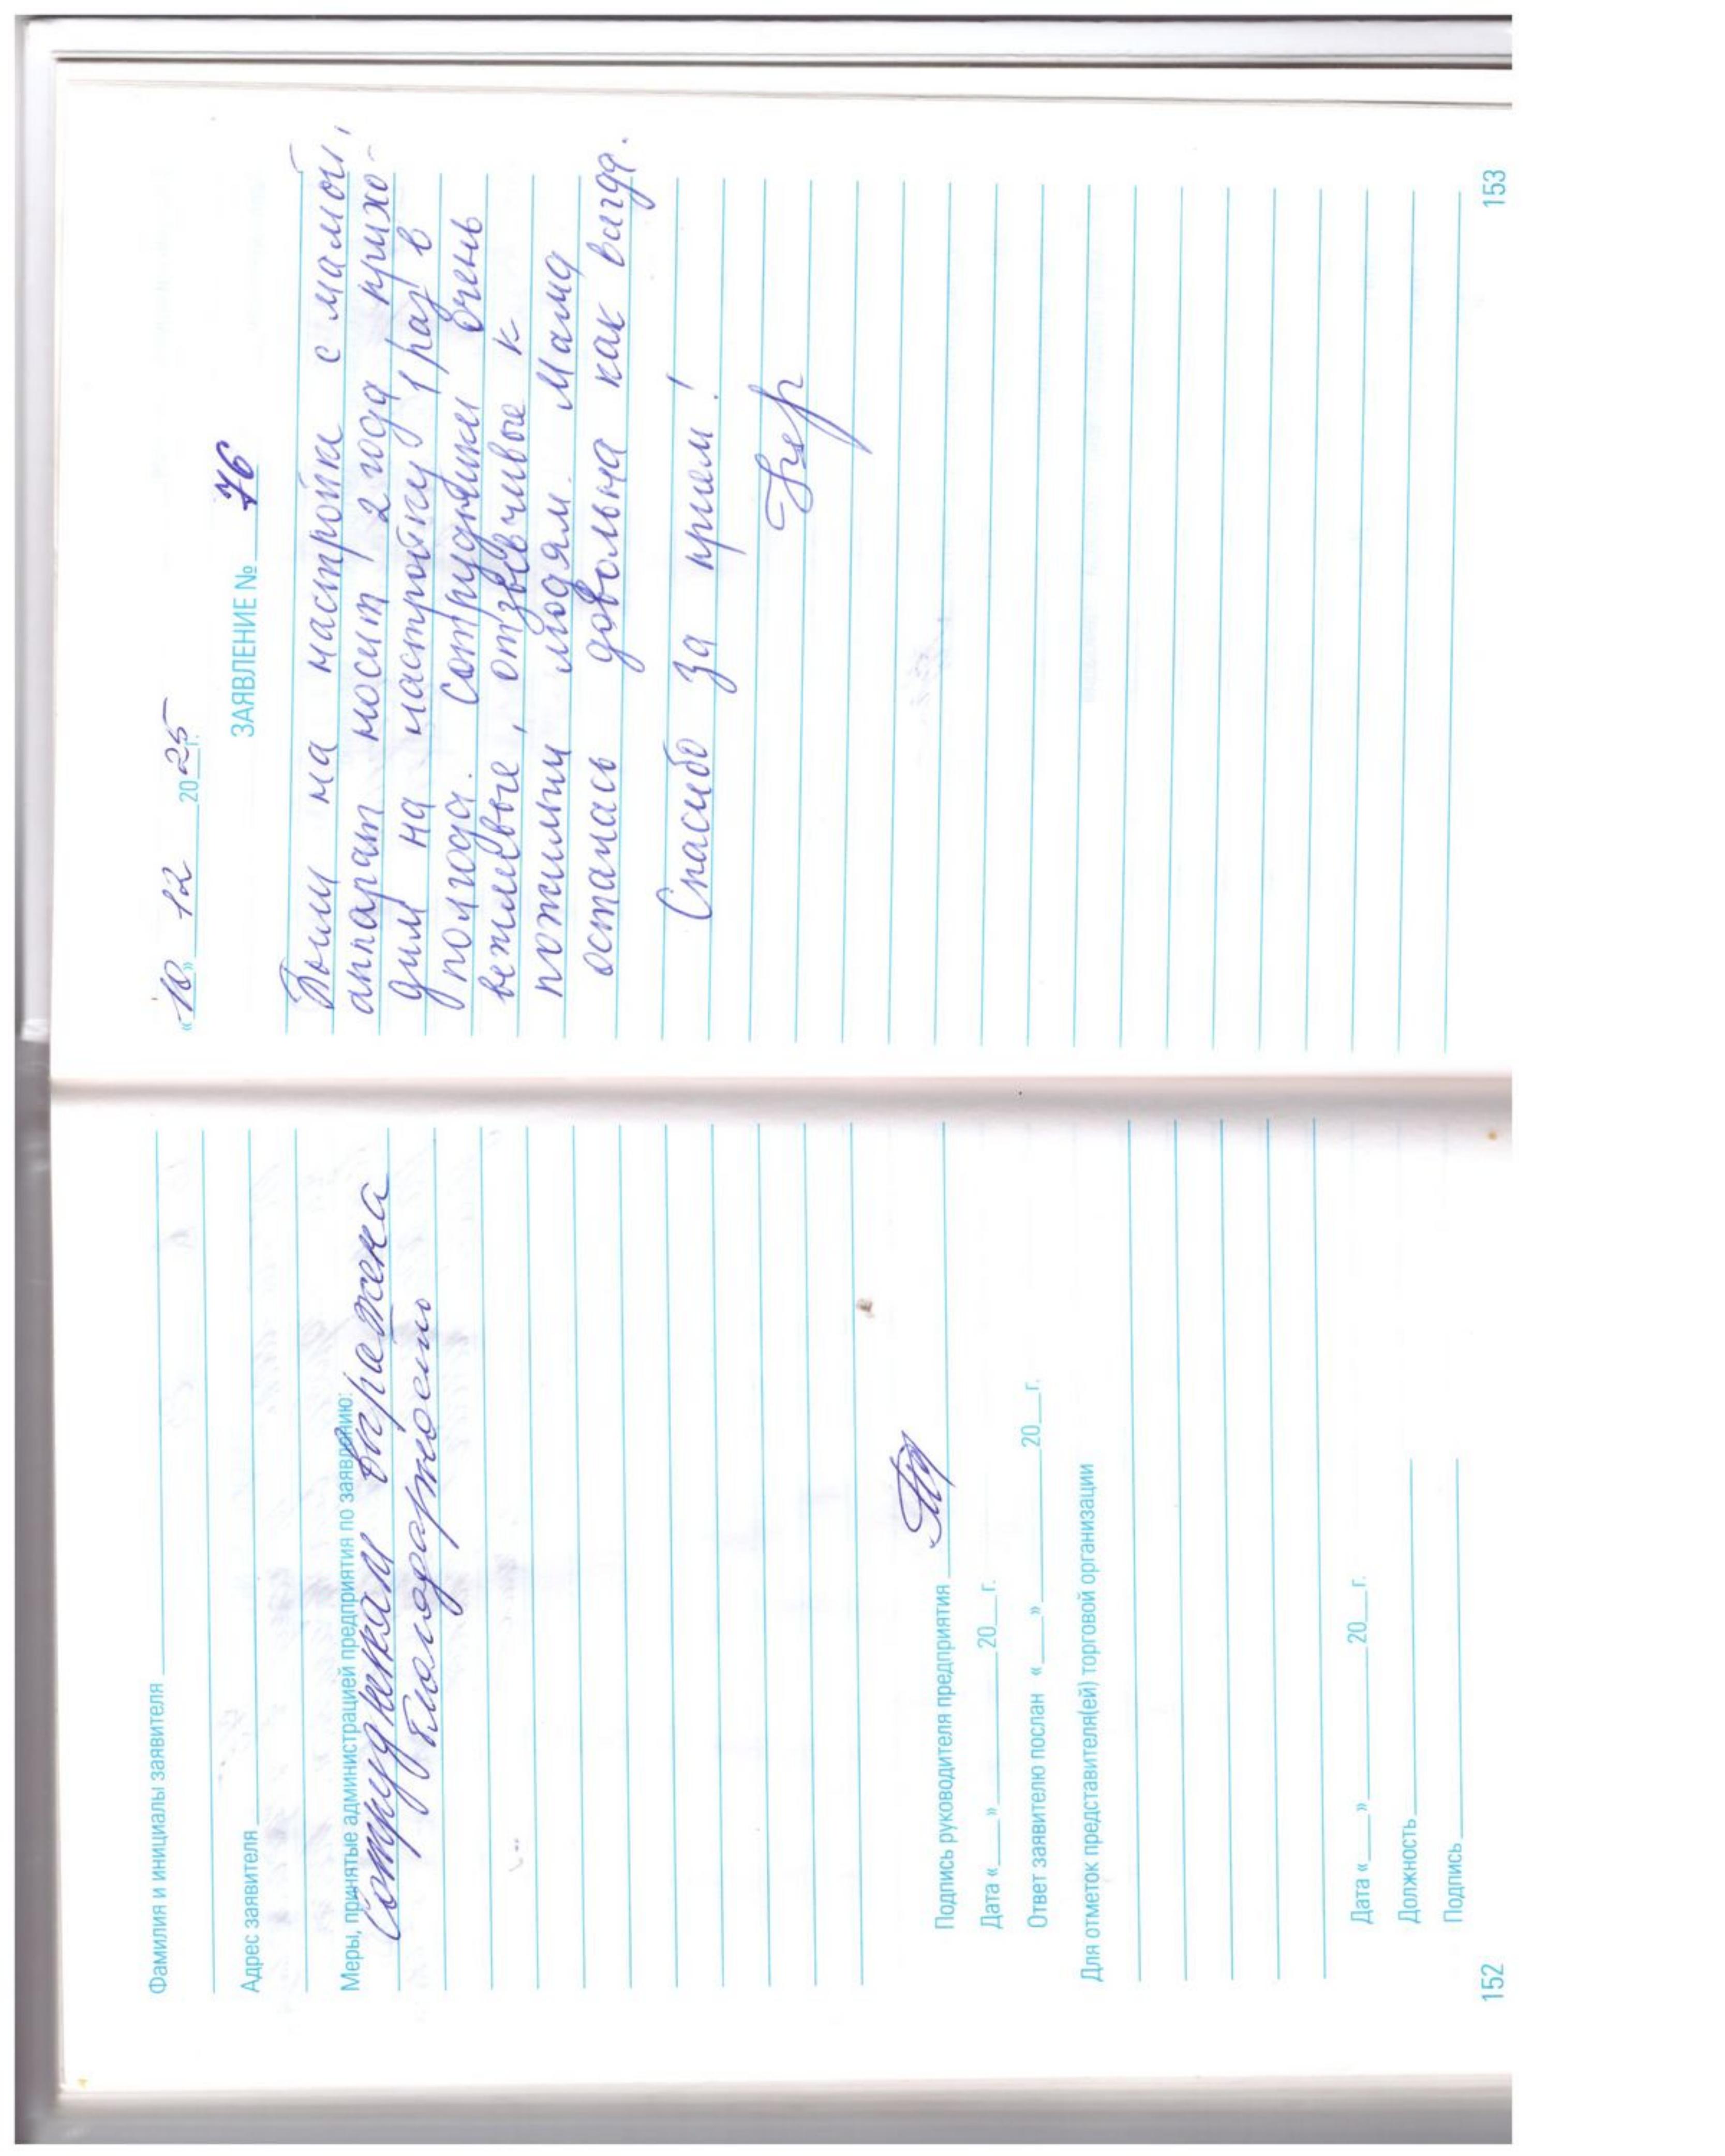 Фамилия и инициалы заявителя
Адрес заявителя
Меры, принятые администрацией предприятия по заявлению:
Сотрудникам выражена
благодарность
Подпись руководителя предприятия
Дата «___»________20__г.
Ответ заявителю послан «___»________20__г.
Для отметок представителя(ей) торговой организации
Дата «___»________20__г.
Должность
Подпись
152
«10» 12 2025 г.
ЗАЯВЛЕНИЕ № 76
Были на настройке с мамой,
аппарат носит 2 года прихо-
дим на настройку 1 раз в
полгода. Сотрудники очень
вежливые, отзывчивые к
пожилым людям. Мама
осталась довольна как всегда.
Спасибо за прием!
153